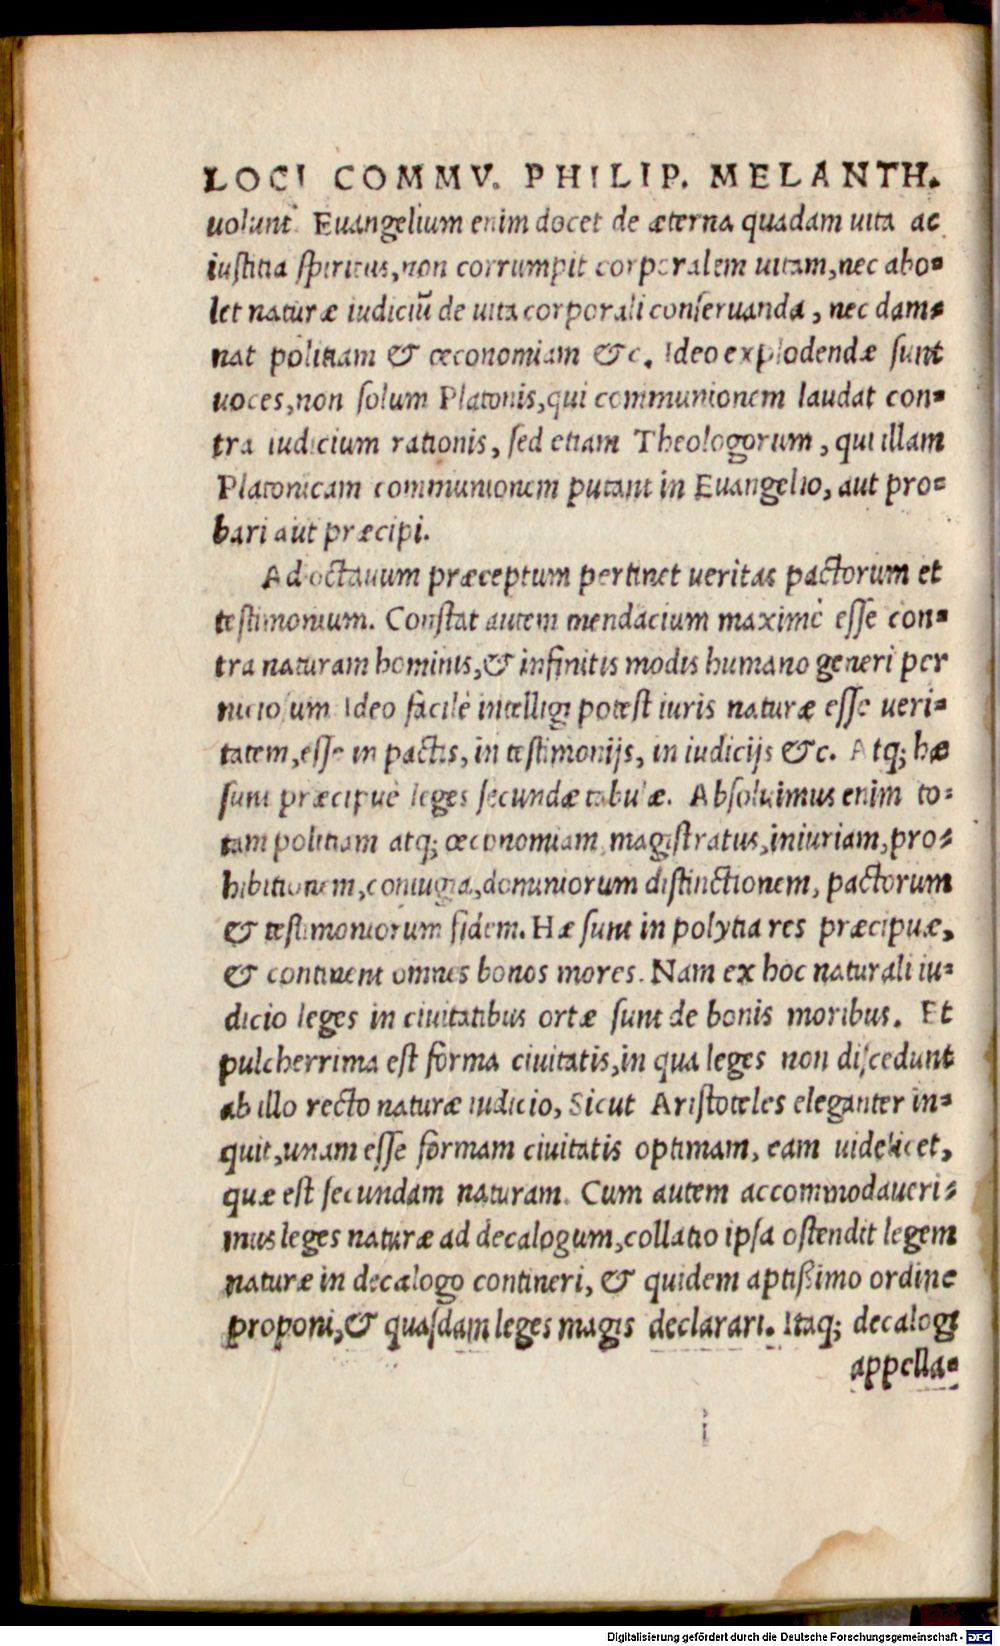 LOCI COMMV. PHILIP. MELANTH.
uolunt. Euangelium enim docet de æterna quadam uita ac
iustitia spiritus, non corrumpit corporalem uitam, nec abo-
let naturæ iudiciũ de uita corporali conseruanda, nec dam-
nat politiam & œconomiam &c. Ideo explodendæ sunt
uoces, non solum Platonis, qui communionem laudat con-
tra iudicium rationis, sed etiam Theologorum, qui illam
Platonicam communionem putant in Euangelio, aut pro-
bari aut præcipi.
Ad octauum præceptum pertinet ueritas pactorum et
testimonium. Constat autem mendacium maximè esse con-
tra naturam hominis, & infinitis modis humano generi per
niciosum Ideo facilè intelligi potest iuris naturæ esse ueri-
tatem, esse in pactis, in testimonijs, in iudicijs &c. Atq; hæ
sunt præcipuè leges secundæ tabulæ. Absoluimus enim to-
tam politiam atq; œconomiam magistratus, iniuriam, pro-
hibitionem, coniugia, dominiorum distinctionem, pactorum
& testimoniorum fidem. Hæ sunt in polytia res præcipuæ,
& continent omnes bonos mores. Nam ex hoc naturali iu-
dicio leges in ciuitatibus ortæ sunt de bonis moribus. Et
pulcherrima est forma ciuitatis, in qua leges non discedunt
ab illo recto naturæ iudicio, Sicut Aristoteles eleganter in-
quit, unam esse formam ciuitatis optimam, eam uidelicet,
quæ est secundam naturam. Cum autem accommodaueri-
mus leges naturæ ad decalogum, collatio ipsa ostendit legem
naturæ in decalogo contineri, & quidem aptißimo ordine
proponi, & quasdam leges magis declarari. Itaq; decalogi
appella-
Digitalisierung gefördert durch die Deutsche Forschungsgemeinschaft - DFG